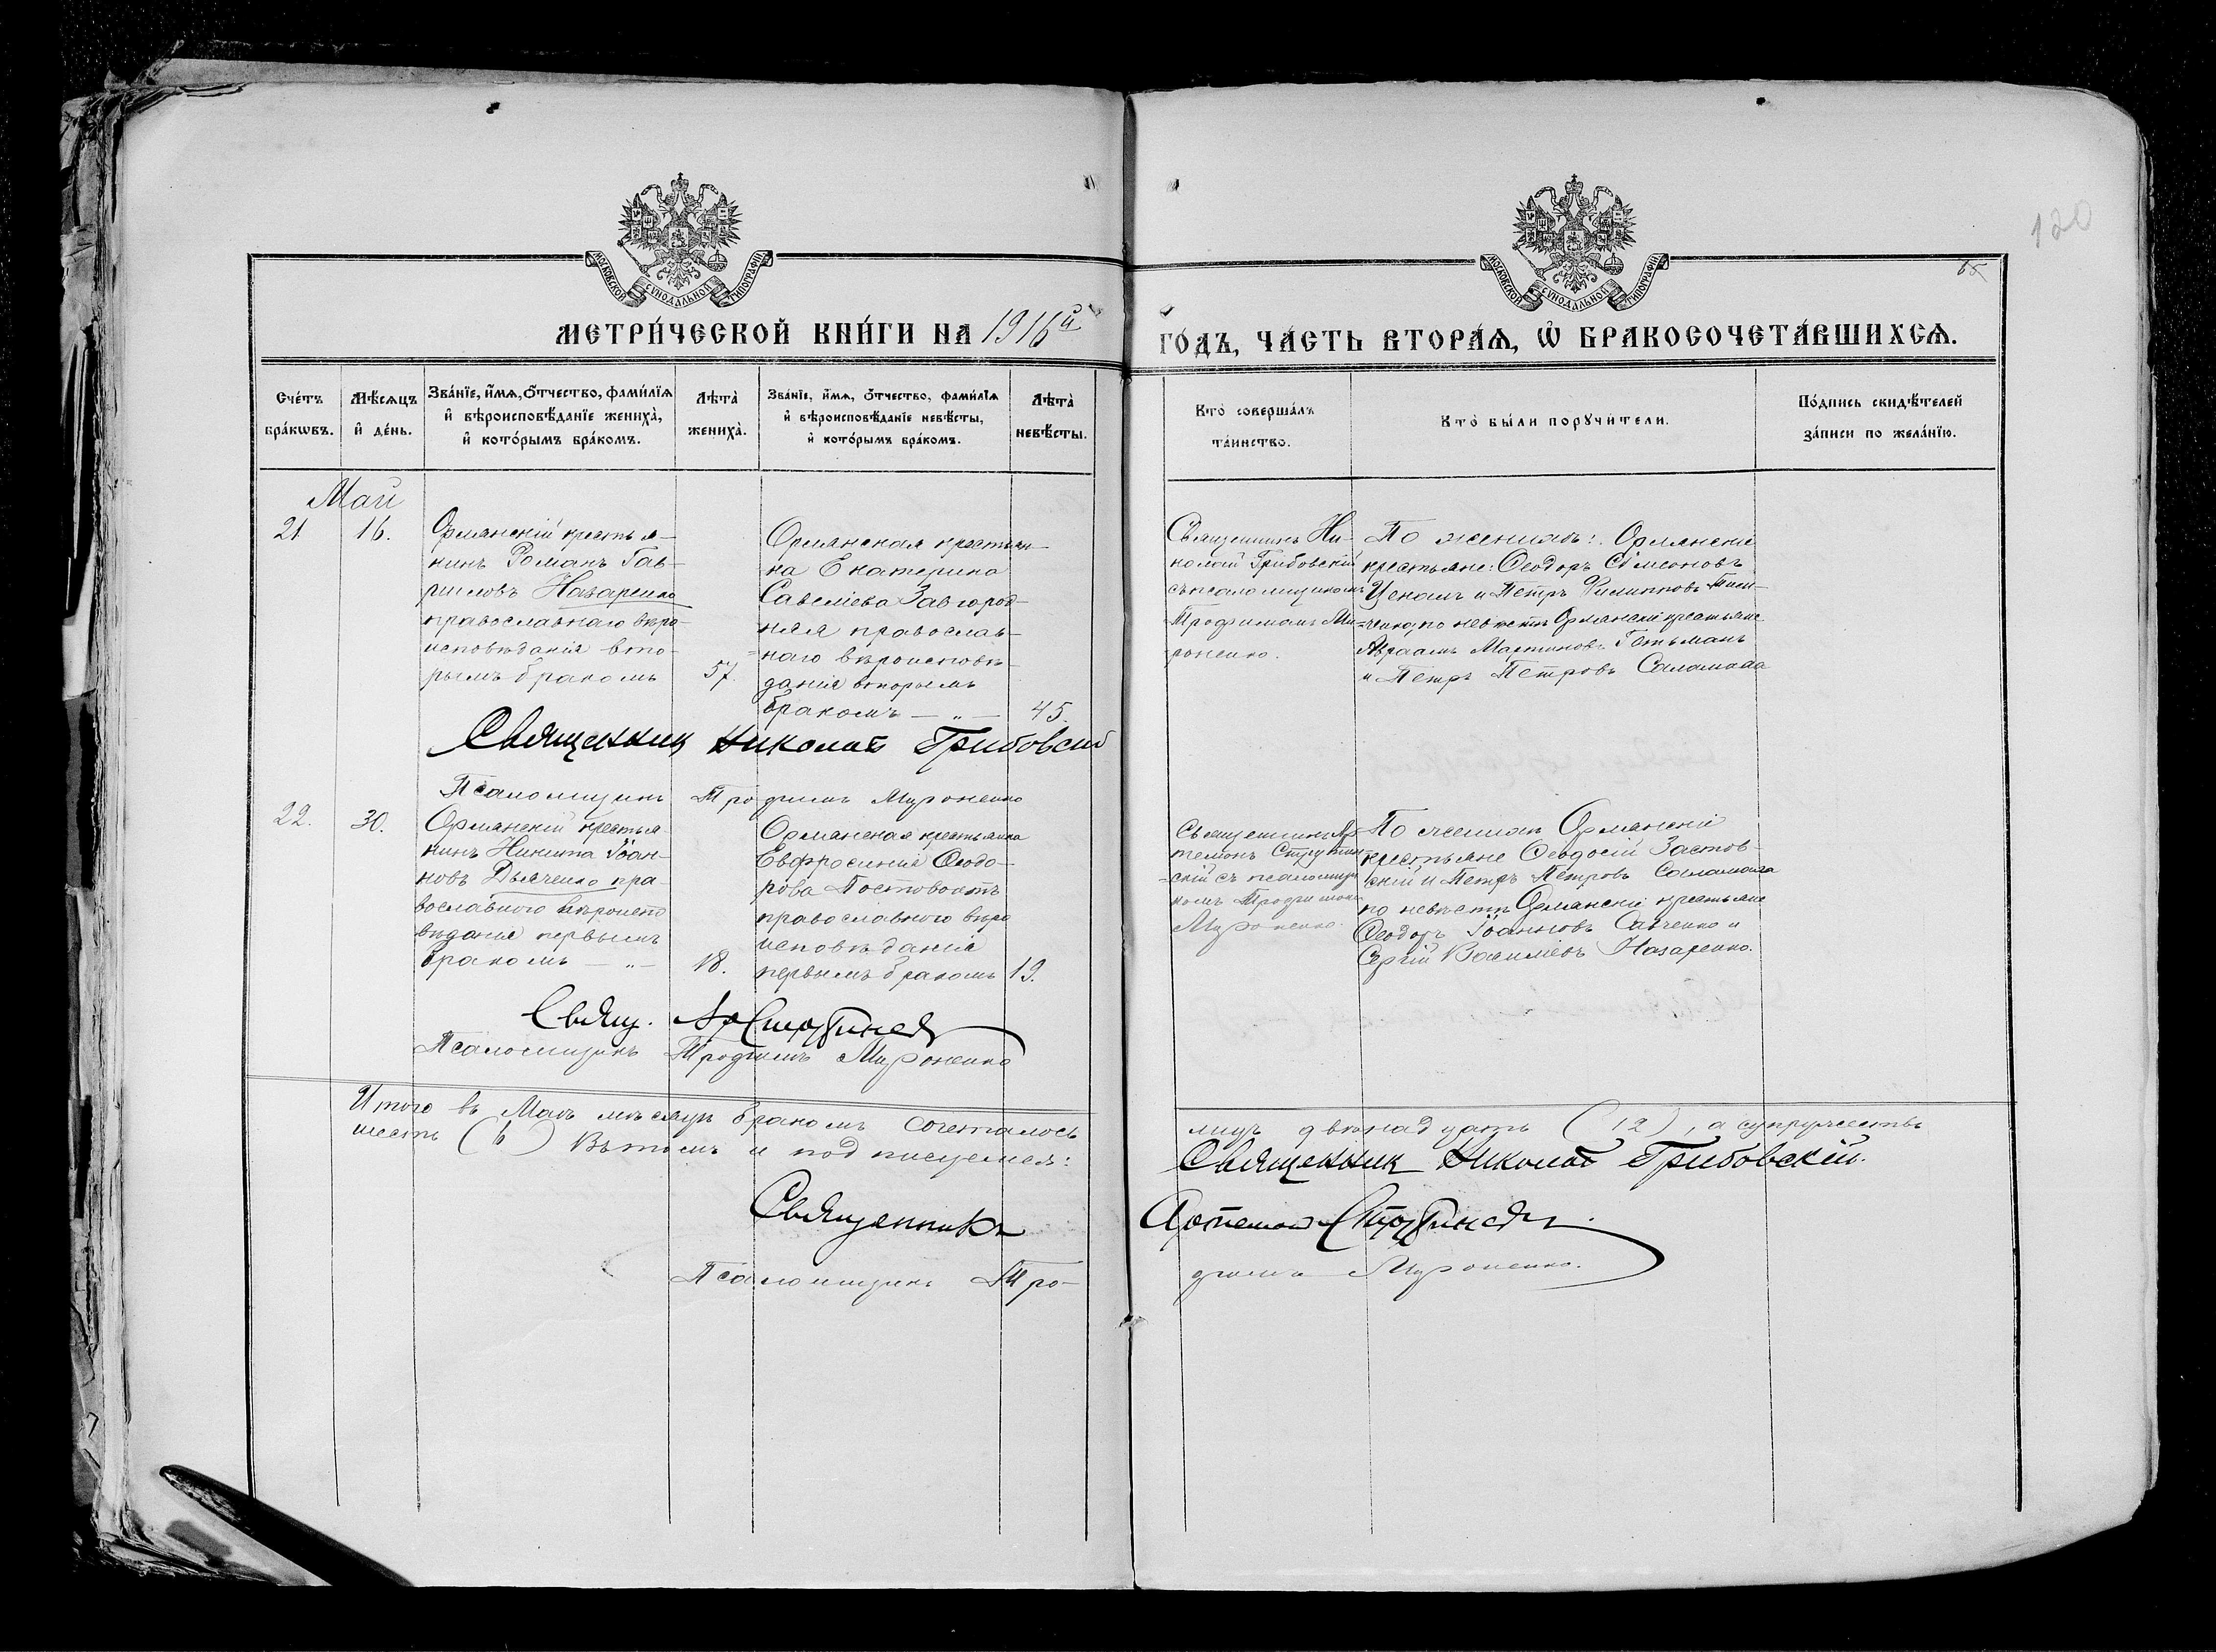 120
65
МОСКОВСКОЙ СѴНОДАЛЬНОЙ ТИПОГРАФІИ
МОСКОВСКОЙ СѴНОДАЛЬНОЙ ТИПОГРАФІИ
МЕТРИ́ЧЕСКОЙ КНИ́ГИ НА 1916й
ГО́ДЪ, ЧА́СТЬ ВТОРА́Ѧ, Ѡ҆ БРАКОСОЧЕТА́ВШИХСѦ.
Сче́тъ бра́кѡвъ.
Мѣ́сѧцъ и҆ де́нь.
Зва́нїе, и҆́мѧ, о҆́тчество, фами́лїѧ
и҆ вѣроисповѣ́данїе жениха̀,
и҆ кото́рымъ бра́комъ.
Лѣта̀ жениха̀.
Зва́нїе, и҆́мѧ, о҆́тчество, фами́лїѧ
и҆ вѣроисповѣ́данїе невѣ́сты,
и҆ кото́рымъ бра́комъ.
Лѣта̀ невѣ́сты.
Кто̀ соверша́лъ
та́инство.
Кто̀ бы́ли порꙋчи́тели.
По́дпись свидѣ́телей
за́писи по жела́нїю.
Май
21
16.
Орлянскій крестья-
нинъ Романъ Гав-
риловъ Назаренко
православнаго вѣро-
исповѣданія вто-
рымъ бракомъ
57.
Орлянская крестьян-
ка Екатерина
Савеліева Завгород-
няя православ-
наго вѣроисповѣ-
данія вторымъ
бракомъ — „ —
45.
Священникъ Ни-
колай Грибовскій
съ псаломщикомъ
Трофимомъ Ми-
роненко.
По женихѣ: Орлянскіе
крестьяне: Ѳеодоръ Сімеоновъ
и Петръ Филипповъ
по невѣстѣ Орлянскіе крестьяне
Авраамъ Мартиновъ Гетьманъ
и Петръ Петровъ Саламаха
Священник Николай Грибовскій
Псаломщикъ Трофимъ Мироненко
22.
30.
Орлянскій крестья-
нинъ Никита Іоан-
новъ Дьяченко пра-
вославного вѣроиспо
вѣданія первымъ
бракомъ — „ —
18.
Орлянская крестьянка
Евфросинія Ѳеодо-
рова
православного вѣро
исповѣданія
первымъ бракомъ
19.
Священникъ Ар-
темонъ
съ псаломщи
комъ Трофимомъ
Мироненко.
По женихѣ Орлянскіе
крестьяне Ѳеодосій
и Петръ Петровъ Саламаха
по невѣстѣ Орлянскіе крестьяне
Ѳеодоръ Іоанновъ Савченко и
Сергій Василіевъ Назаренко.
Свящ.
Псаломщикъ Трофимъ Мироненко
Итого въ Маѣ мѣсяцѣ бракомъ сочеталось
лицъ двѣнадцать (12), а супружествъ
шесть (6) Въ томъ и подписуемся:
Священник Николай Грибовскій.
Священникъ
Артемон
Псаломщикъ Тро-
фимъ Мироненко.